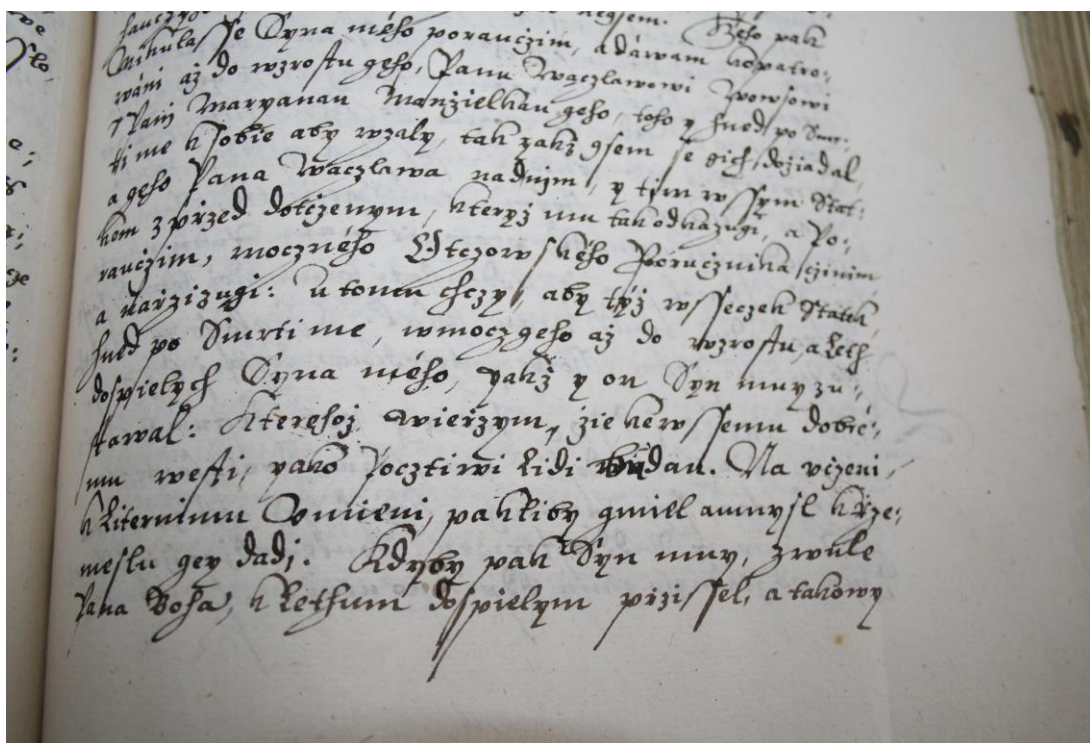 Mikulasse Syna mého porauczim, a dáwam kopatro-
wáni aż do wzrostu geho, Panu Waczlawowi Wowsowi
y Panj Maryanau Manżielkau geho, toho y hned po Smr-
ti me k sobie aby wzaly, tak yakż gsem se gich dożiadal,
a geho Pana Waczlawa nadnjm, y tjm wssym Stat-
kem zpržed dotczenym, kteryż mu tak odkazugi, a Po-
rauczim, moczného Otczowského Porucznika czinim
a narzizugi: u tomu chczy, aby tyż wsseczek Statek,
hned po Smrti me, wmocz geho aż do wzrostu, a Leth
dospielych Syna mého, yakż y on Syn muy zu-
stawal: Kterehoż wierzym, żie kewssemu dobré-
mu westi, yako Pocztiwi Lidi budau. Na vczeni,
k Liternimu Vmieni, pakliby gmiel aumysl k Rze-
meslu gey dadj. Kdyby pak Syn muy, zwule
Pana Boha, k Lethum dospielym przissel, a takowy